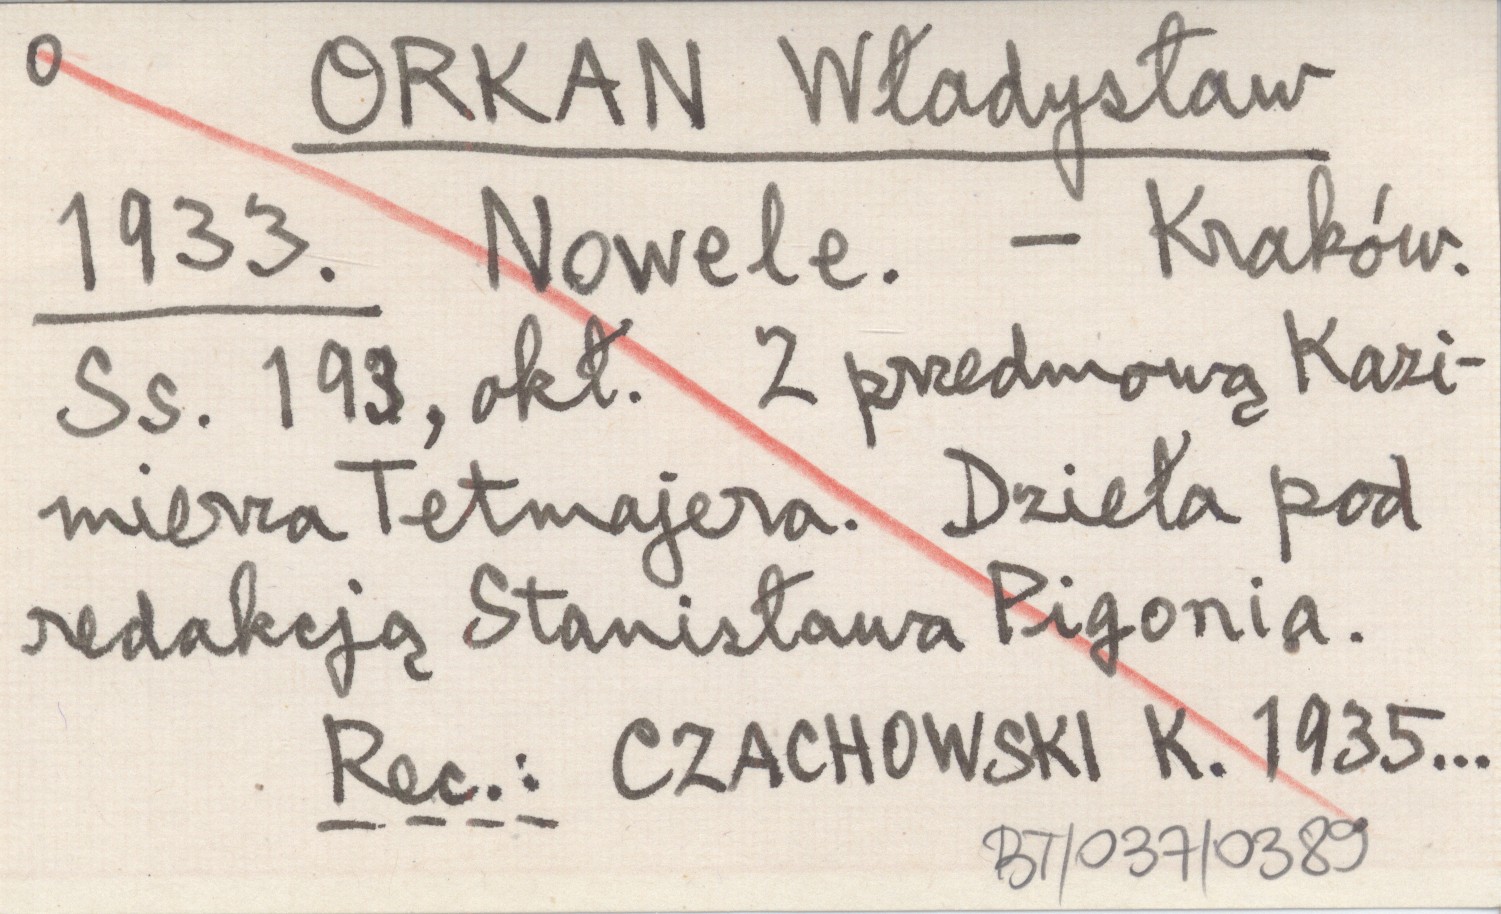 O ORKAN Władysław
1933. Nowele. – Kraków.
Ss. 193, okł. Z przedmową Kazi-
mierza Tetmajera. Dzieła pod
redakcją Stanisława Pigonia.
Rec.: CZACHOWSKI K. 1935...
BT/037/0389